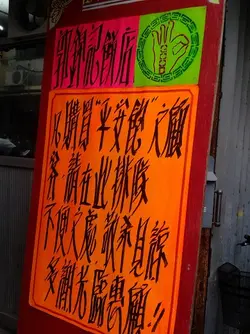 郭錦記餅店
凡購買"平安包"之顧
客，請在此排隊
不便之處 敬希見諒
多謝光臨惠顧!!